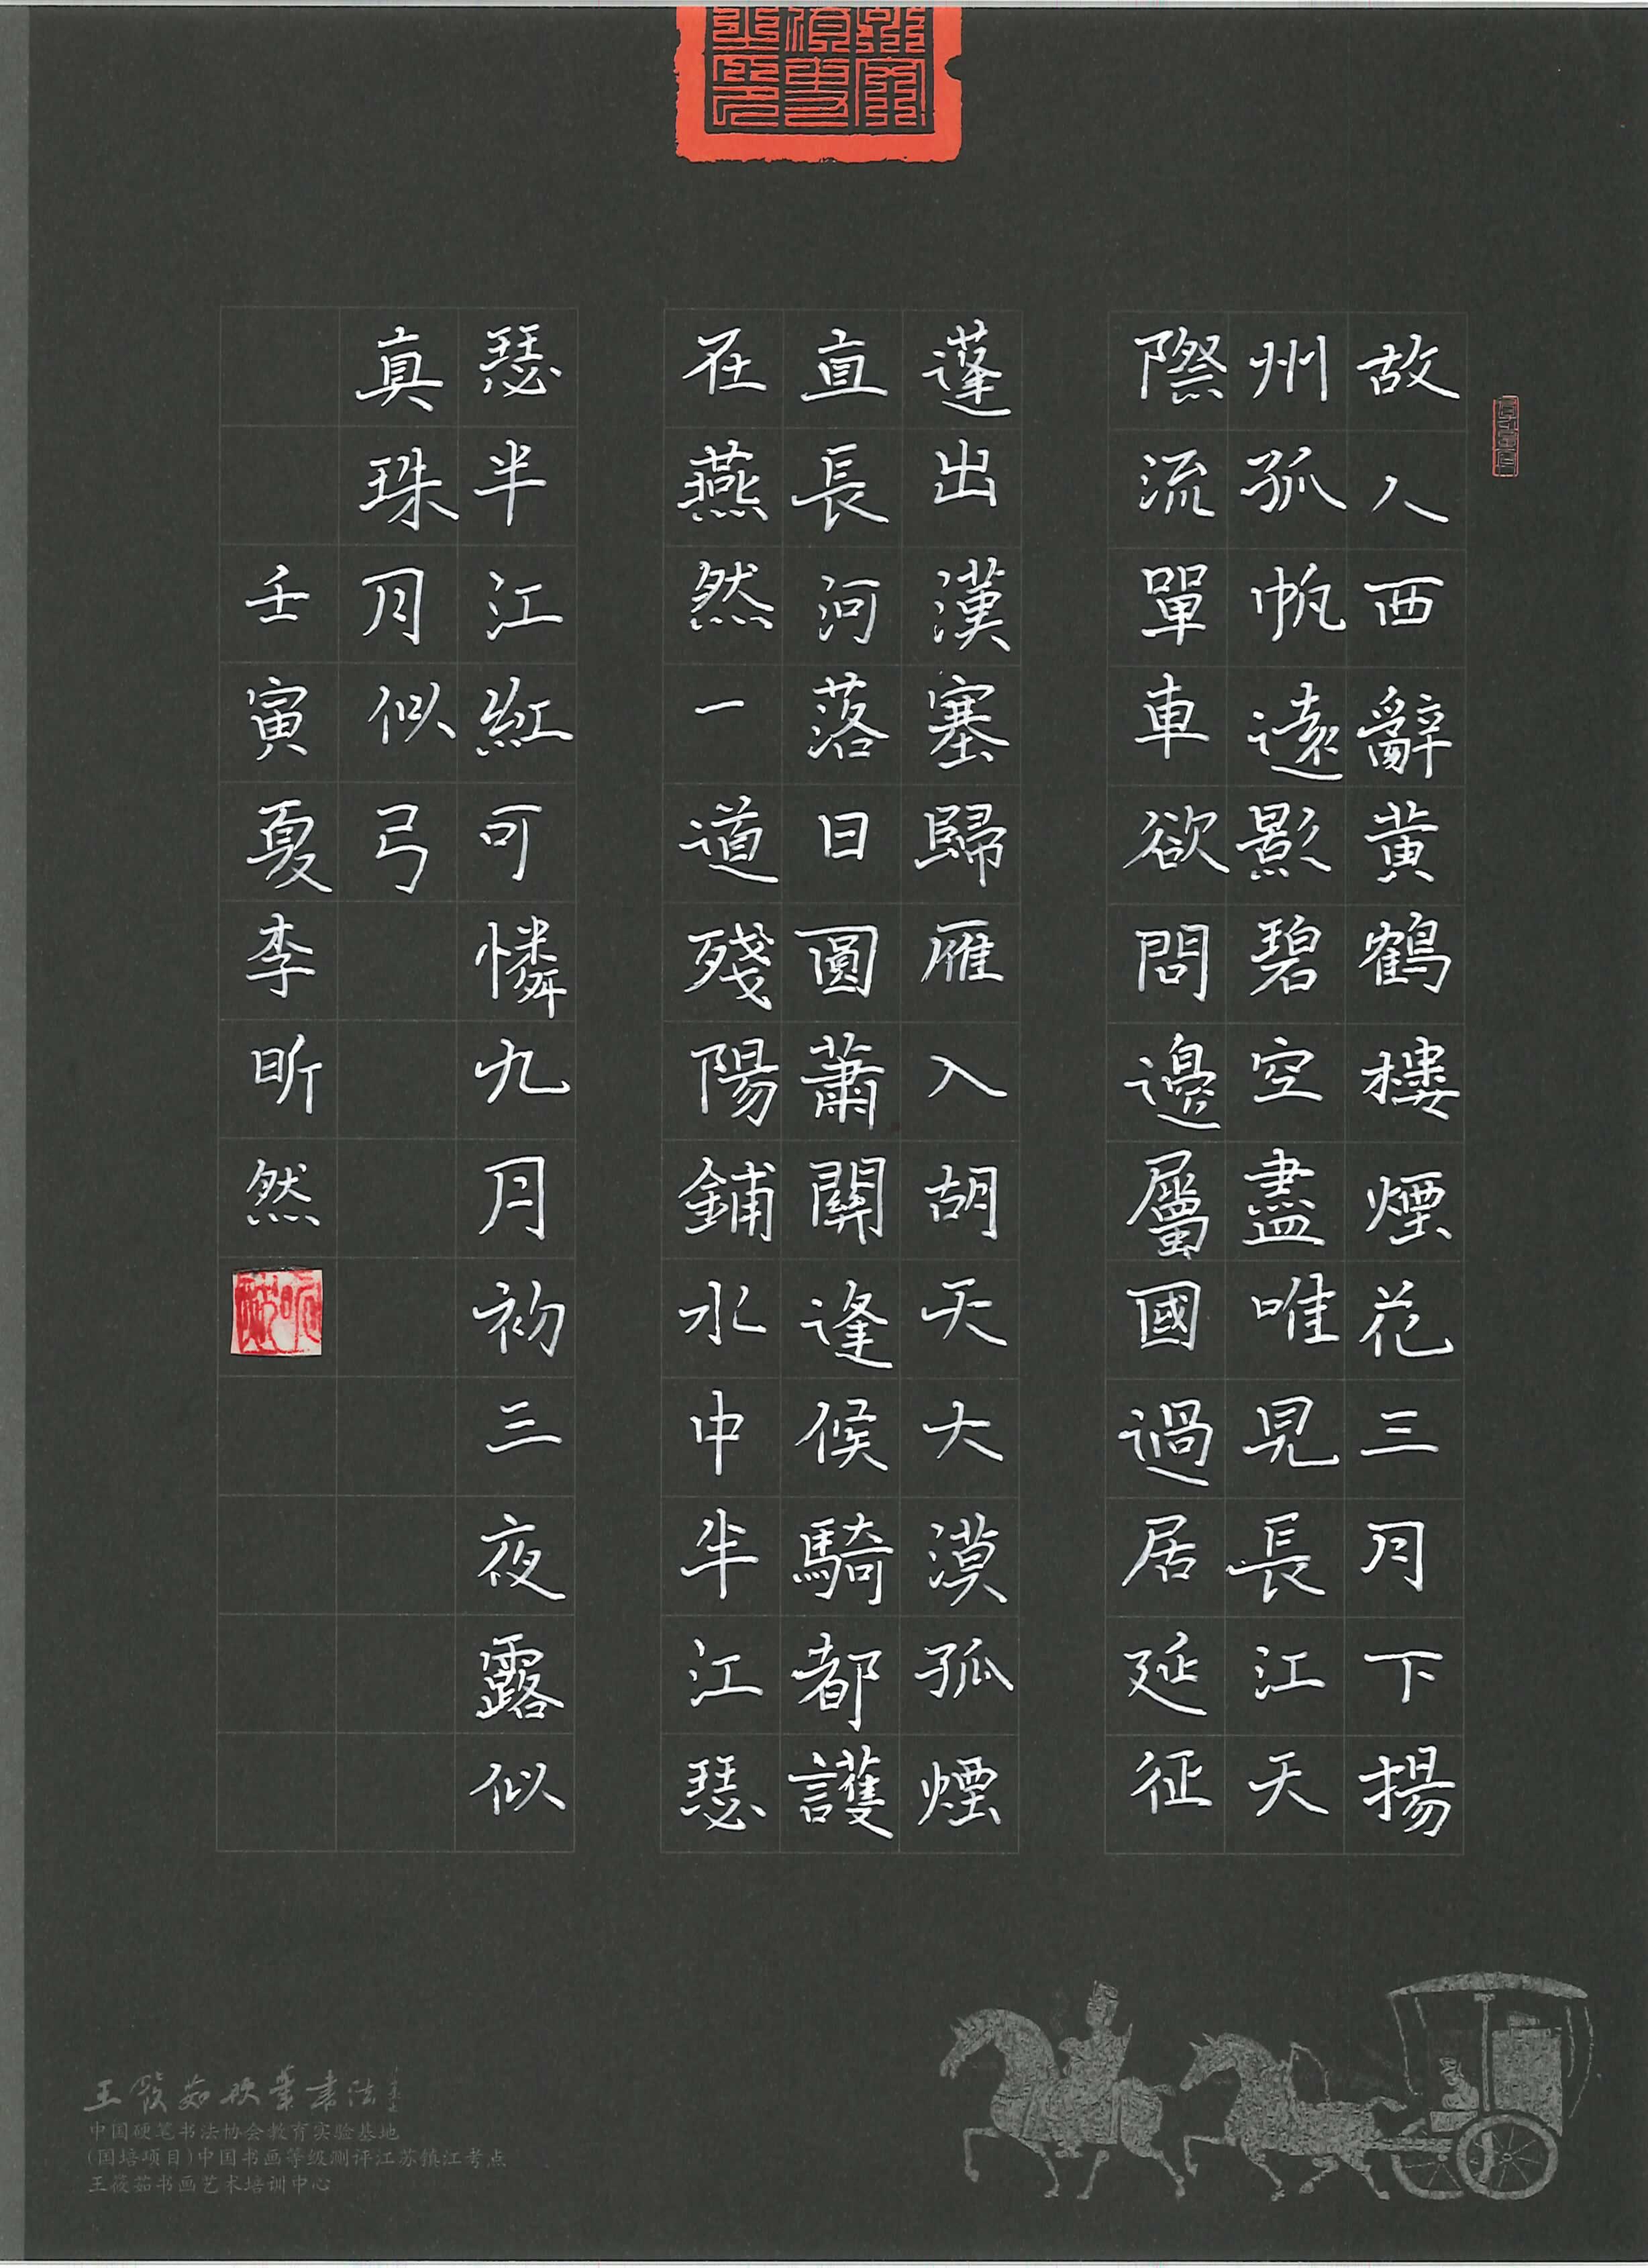 故人西辭黃鶴樓煙花三月下揚
州孤帆遠影碧空盡唯見長江天
際流單車欲問邊屬國過居延征
蓬出漢塞歸雁入胡天大漠孤煙
直長河落日圓蕭關逢候騎都護
在燕然一道殘陽鋪水中半江瑟
瑟半江紅可憐九月初三夜露似
真珠月似弓
壬寅夏李昕然
王筱茹硬筆書法
中国硬笔书法协会教育实验基地
(国培项目)中国书画等级测评江苏镇江考点
王筱茹书画艺术培训中心